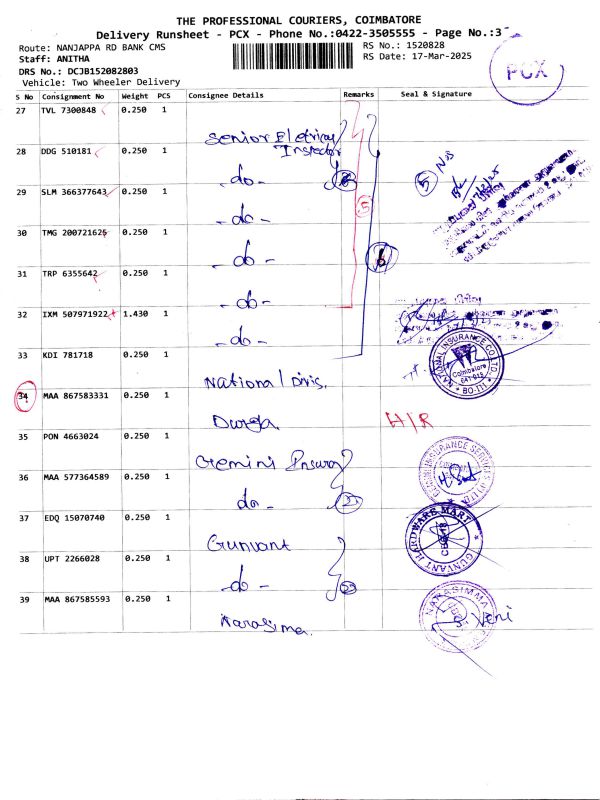 THE PROFESSIONAL COURIERS, COIMBATORE
Delivery Runsheet - PCX - Phone No.:0422-3505555 - Page No.:3
Route: NANJAPPA RD BANK CMS
RS No.: 1520828
Staff: ANITHA
RS Date: 17-Mar-2025
DRS No.: DCJB152082803
Vehicle: Two Wheeler Delivery
PCX
S No Consignment No Weight PCS Consignee Details Remarks Seal & Signature
27 TVL 7300848 0.250 1 Senior Eletrical Inspector
28 DDG 510181 0.250 1 -do-
29 SLM 366377643 0.250 1 -do-
30 TMG 200721625 0.250 1 -do-
31 TRP 6355642 0.250 1 -do-
32 IXM 507971922 1.430 1 -do-
33 KDI 781718 0.250 1 National Divis.
34 MAA 867583331 0.250 1 Durga. H/R
35 PON 4663024 0.250 1 Gemini Insura
36 MAA 577364589 0.250 1 do-
37 EDQ 15070740 0.250 1 Gunvant
38 UPT 2266028 0.250 1 -do-
39 MAA 867585593 0.250 1 Narasima.
5
6
5
NATIONAL INSURANCE CO LTD.
Coimbatore
641 018
BO-III
GUNVANT HARDWARE MART
CBE-18
NARASIMMA
Veni